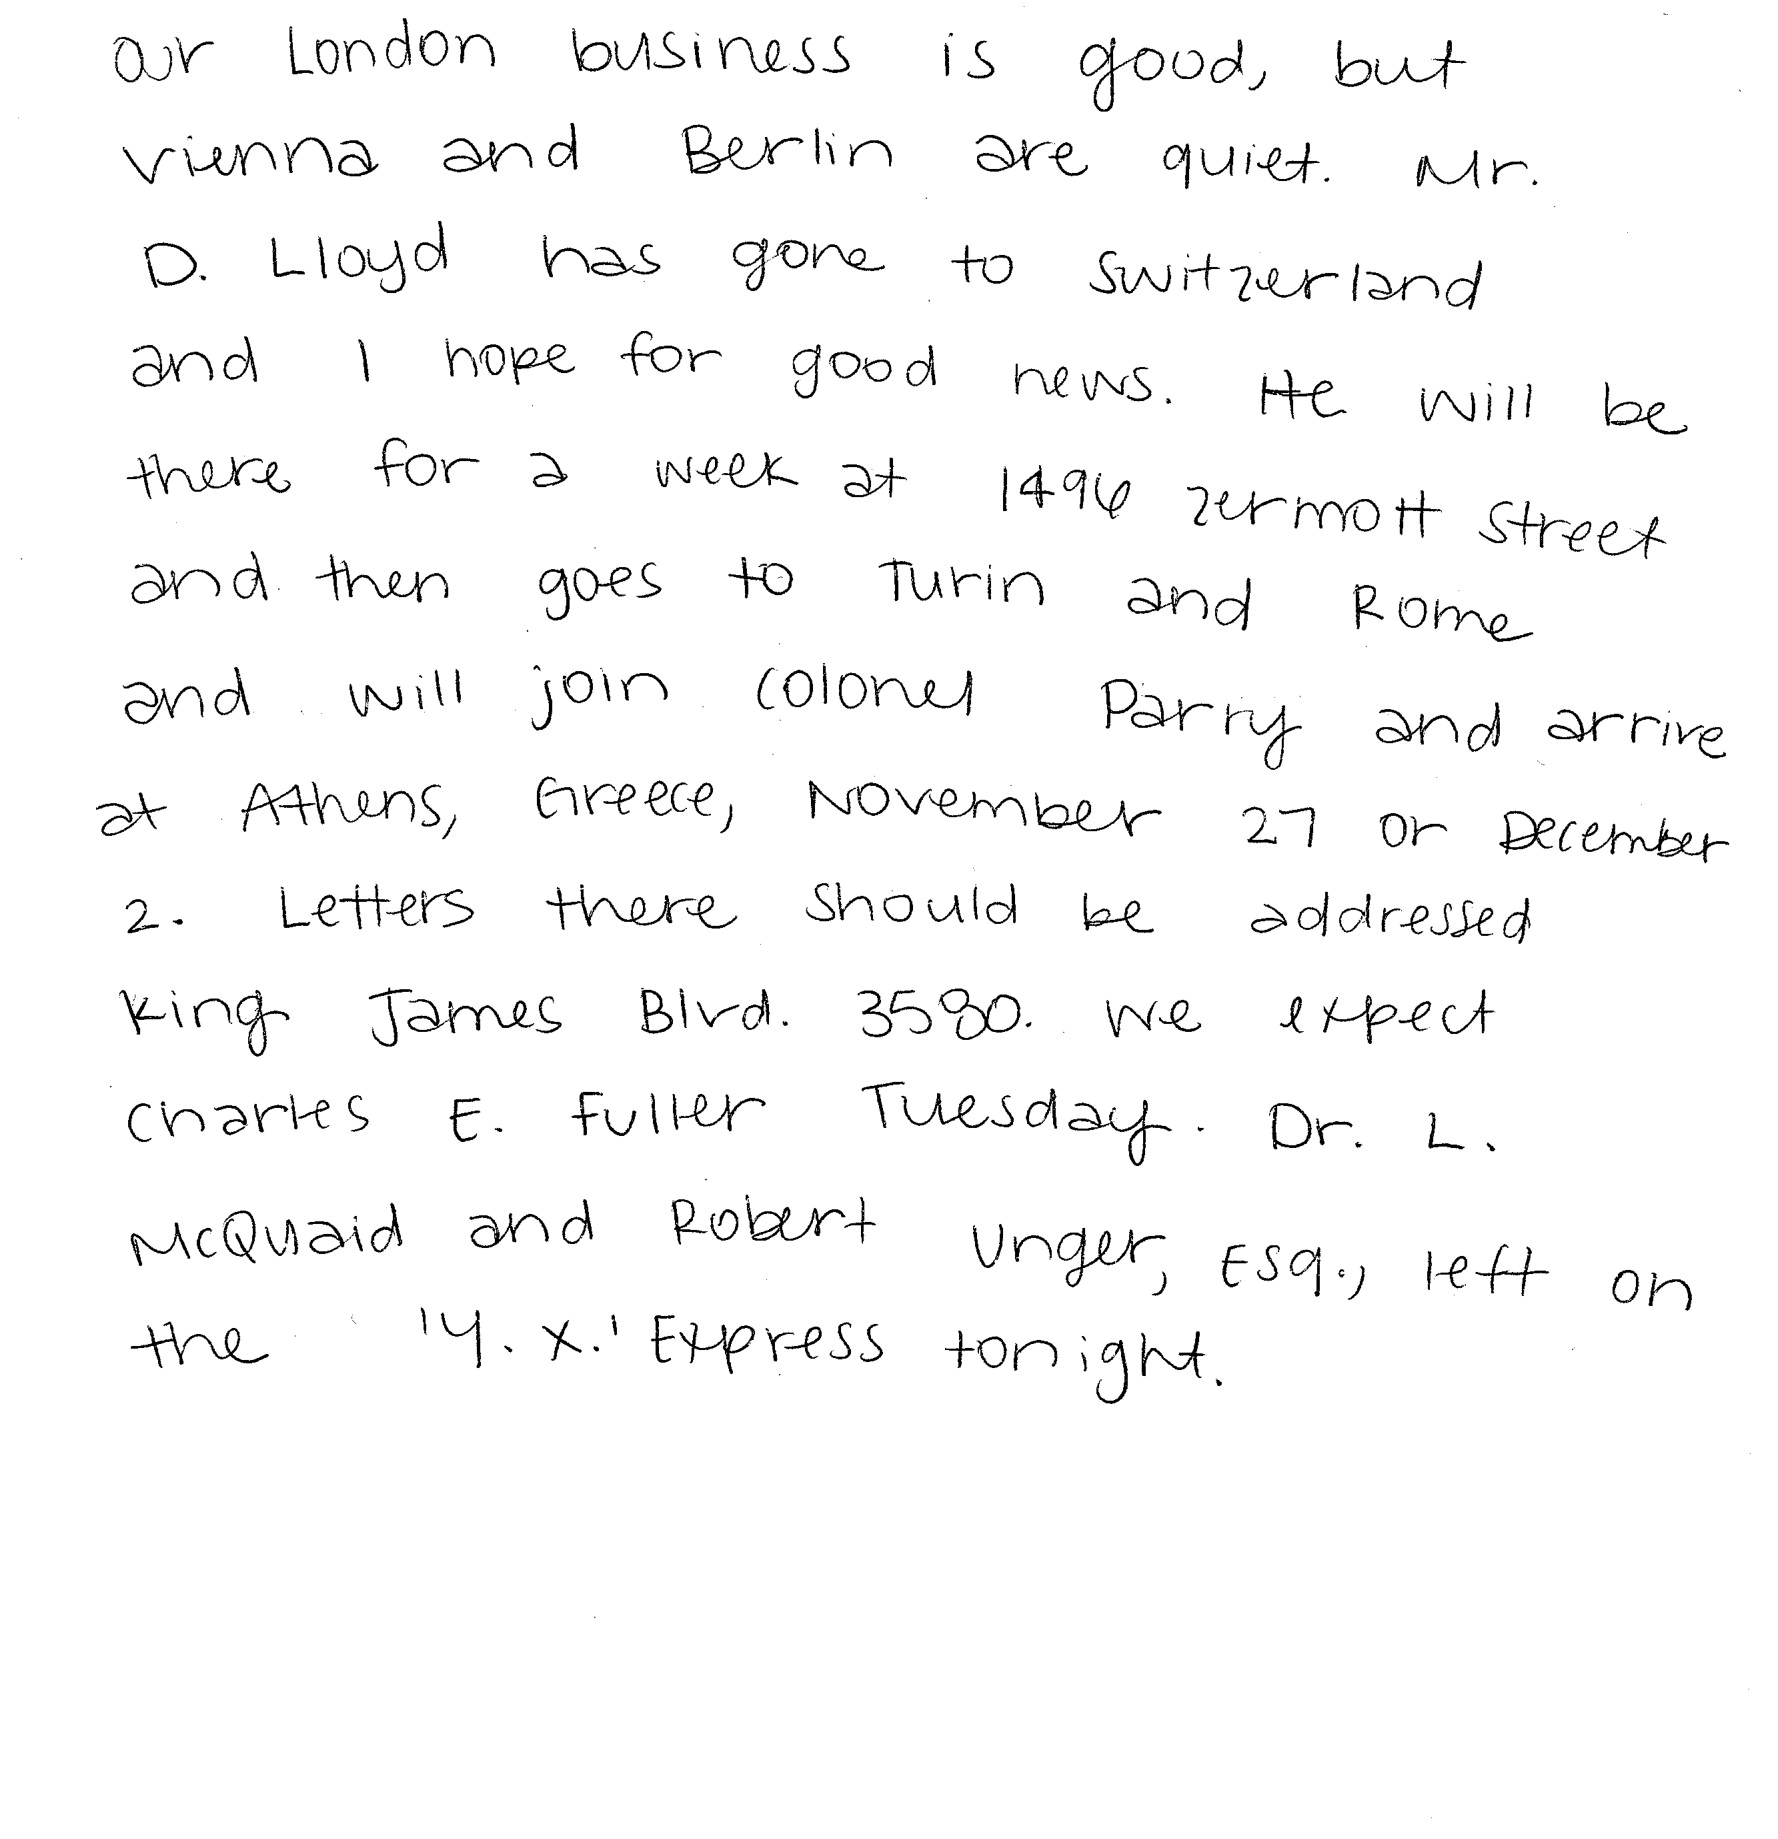 our London business is good, but
vienna and Berlin are quiet. Mr.
D. Lloyd has gone to switzerland
and I hope for good news. He will be
there for a week at 1496 zermott street
and then goes to Turin and Rome
and will join colonel Parry and arrive
at Athens, Greece, November 27 or December
2. Letters there should be addressed
King James Blvd. 3580. we expect
Charles E. Fuller Tuesday. Dr. L.
McQuaid and Robert Unger, Esq., left on
the 'Y. X.' Express tonight.